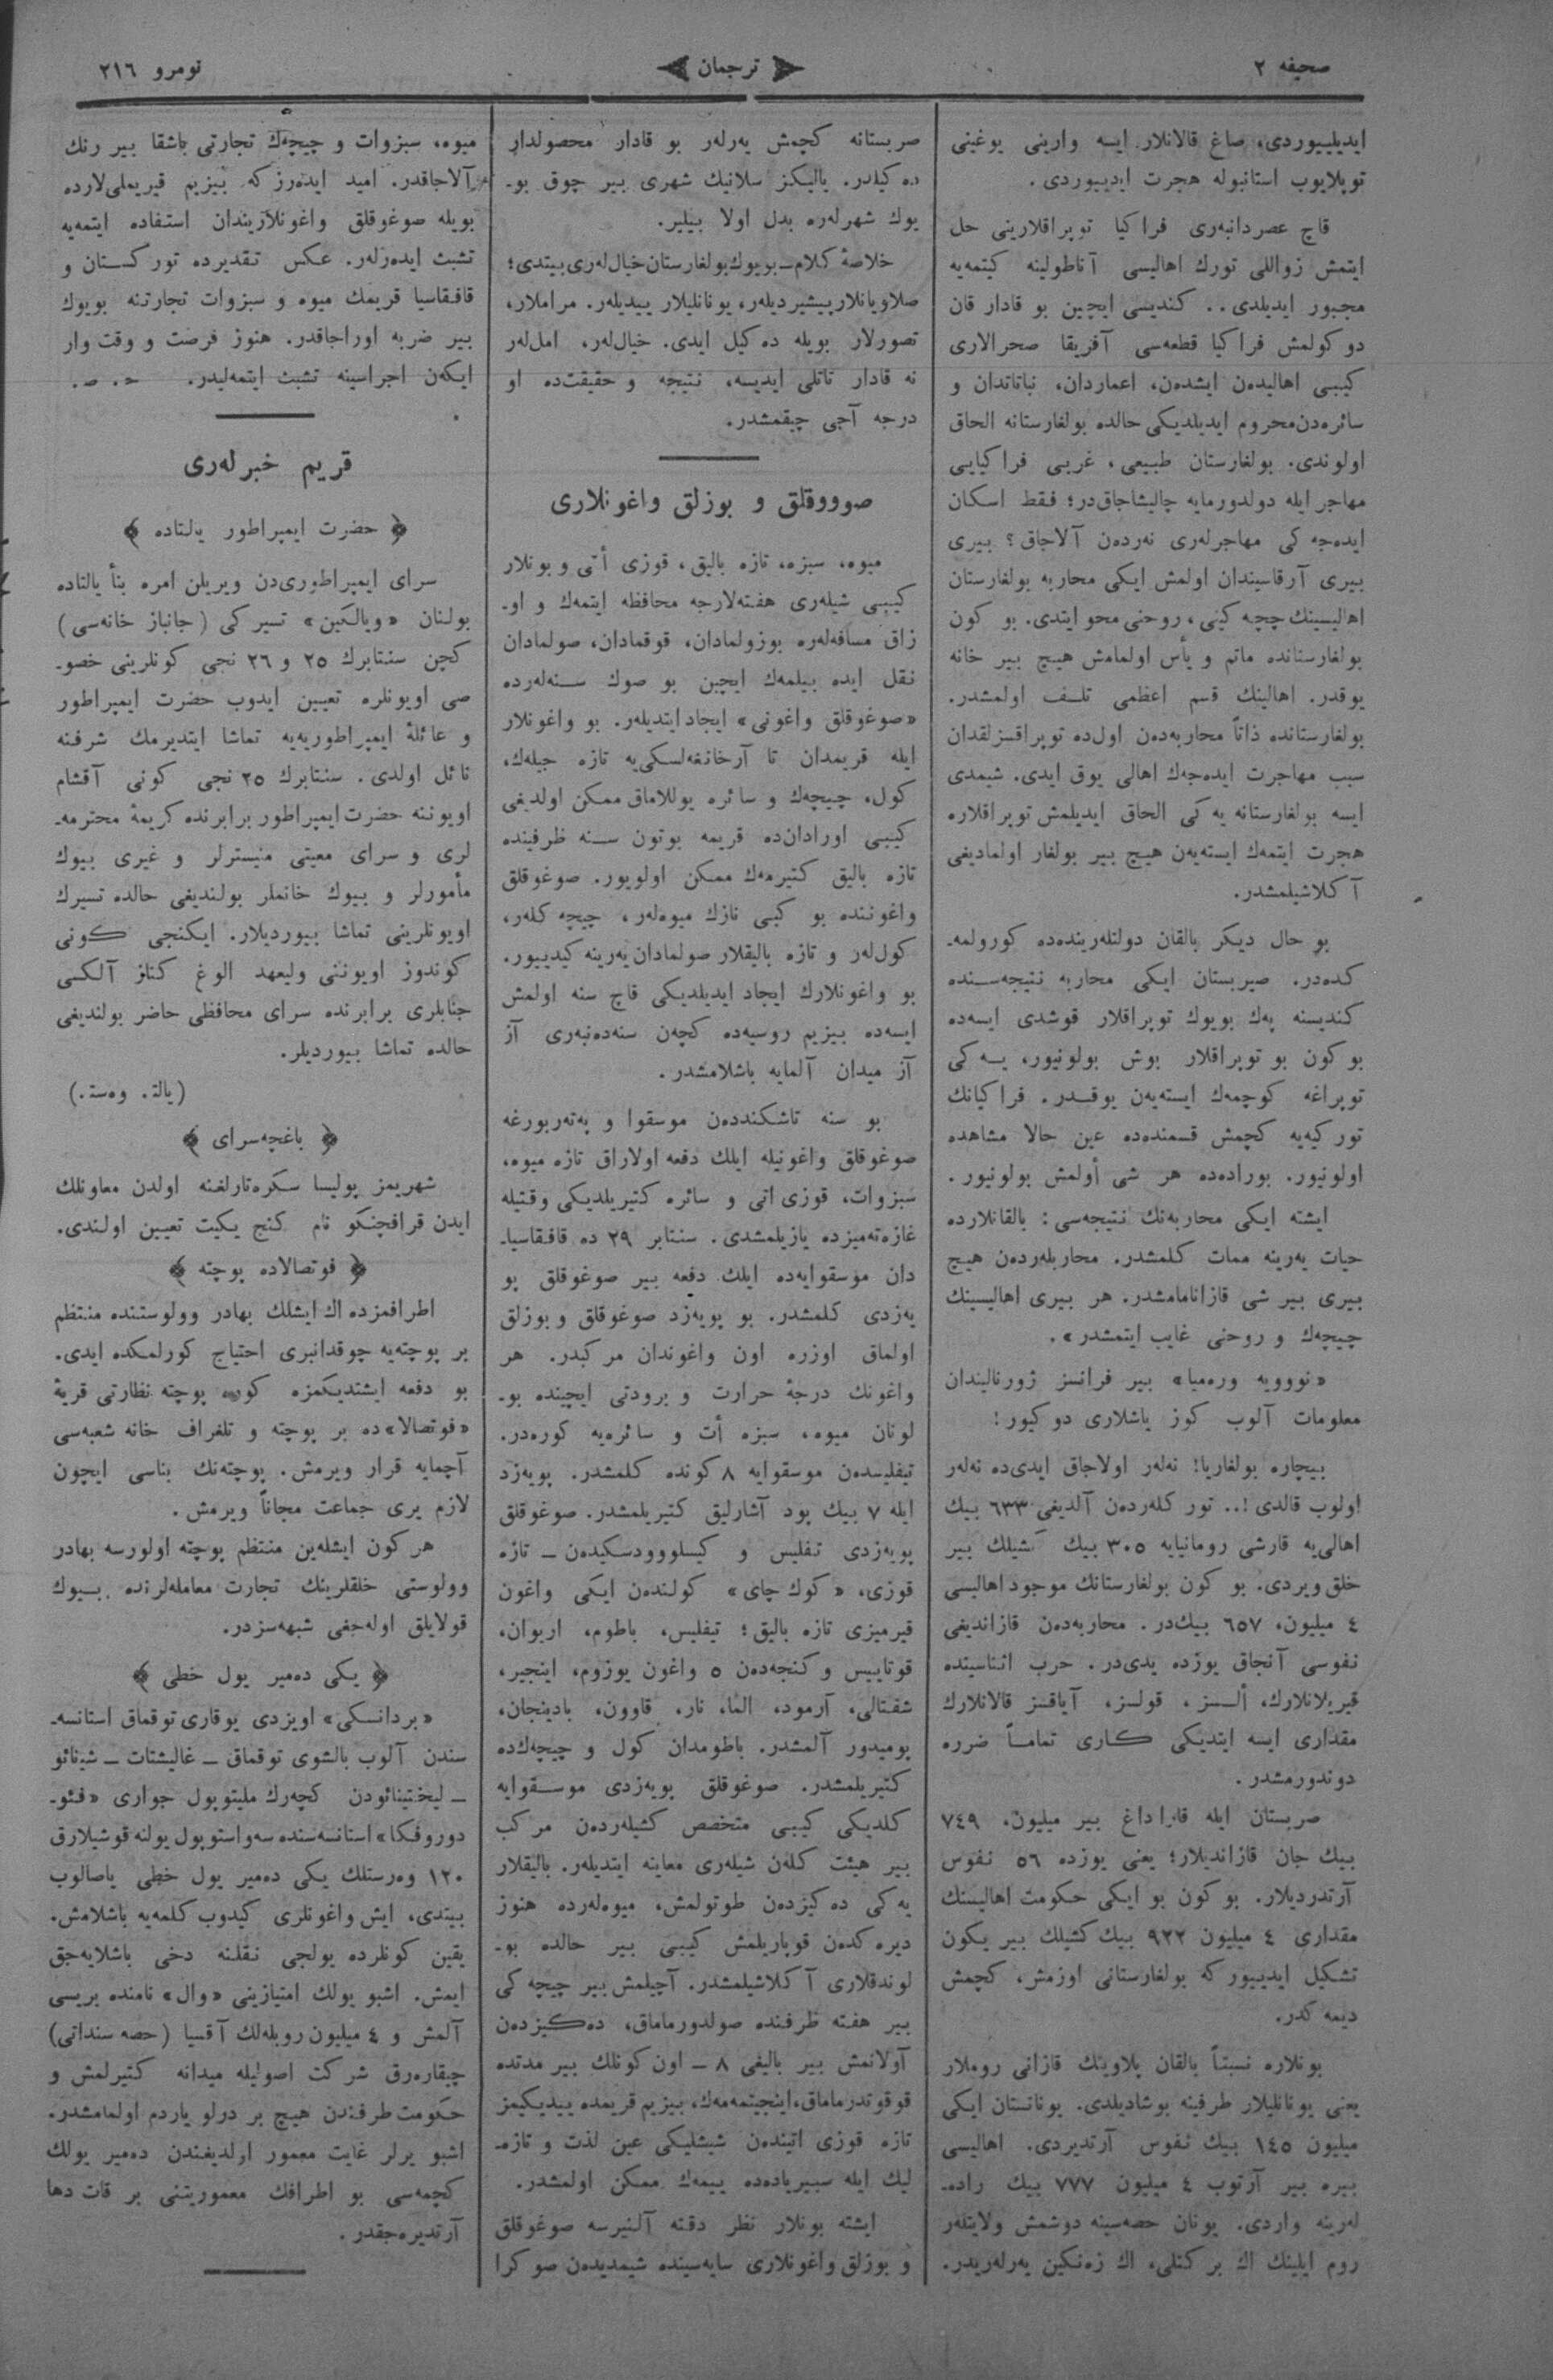 صحیفه ٢
ترجمان
نومرو ٢١٦
ایدیلییوردی، صاغ قالانلار ایسه وارینی یوغینی
توپلایوب استانبوله هجرت ایدییوردی.
قاچ عصردانبەری فراکیا توپراقلارینی حل
ایتمش زواللی تورك اهالیسی آناطولینه کیتمەیه
مجبور ایدیلدی.. کندیسی ایچین بو قادار قان
دوکولمش فراکیا قطعەسی آفریقا صحرالاری
کیبی اهالیدەن ایشدەن، اعماردان، نباتاتدان و
سائرەدن محروم ایدیلدیکی حالده بولغارستانه الحاق
اولوندی. بولغارستان طبیعی، غربی فراکیایی
مهاجر ایله دولدورمایه چالیشاجاق‌در؛ فقط اسکان
ایدەجه کی مهاجرلەری نەردەن آلاجاق؟ بیری
بیری آرقاسیندان اولمش ایکی محاربه بولغارستان
اهالیسینك چچه کینی، روحنی محو ایتدی. بو کون
بولغارستانده ماتم و یأس اولمامش هیچ بیر خانه
یوقدر. اهالینك قسم اعظمی تلف اولمشدر.
بولغارستانده ذاتاً محاربەدەن اول‌ده توپراقسزلقدان
سبب مهاجرت ایدەجەك اهالی یوق ایدی. شیمدی
ایسه بولغارستانه یەکی الحاق ایدیلمش توپراقلاره
هجرت ایتمەك ایستەیەن هیچ بیر بولغار اولمادیغی
آکلاشیلمشدر.
بو حال دیکر بالقان دولتلەریندەده کورولمە‌ـ
کدەدر. صیربستان ایکی محاربه نتیجەسنده
کندیسنه پەك بویوك توپراقلار قوشدی ایسەده
بو کون بو توپراقلار بوش بولونیور، یەکی
توپراغه کوچمەك ایستەیەن یوقدر. فراکیانك
تورکیەیه کچمش قسمندەده عین حالا مشاهده
اولونیور. بورادەده هر شی أولمش بولونیور.
ایشته ایکی محاربەنك نتیجەسی: بالقانلارده
حیات یەرینه ممات کلمشدر. محاربلەردەن هیچ
بیری بیر شی قازانامامشدر. هر بیری اهالیسینك
چیچەك و روحنی غایب ایتمشدر».
«نوویه ورەمیا» بیر فرانسز ژورنالیندان
معلومات آلوب کوز یاشلاری دوکیور:
بیچاره بولغاریا! نەلەر اولاجاق ایدی‌ده نەلەر
اولوب قالدی!.. تورکلەردەن آلدیغی ٦٣٣ بیك
اهالی‌یه قارشی رومانیایه ٣٠٥ بیك کشیلك بیر
خلق ویردی. بو کون بولغارستانك موجود اهالیسی
٤ میلیون، ٦٥٧ بیك‌در. محاربەدەن قازاندیغی
نفوسی آنجاق یوزده یدی‌در. حرب اثناسینده
قیریلانلارك، ألسز، قولسز، آیاقسز قالانلارك
مقداری ایسه ایتدیکی کاری تماماً ضرره
دوندورمشدر.
صربستان ایله قاراداغ بیر میلیون، ٧٤٩
بیك جان قازاندیلار؛ یعنی یوزده ٥٦ نفوس
آرتدردیلار. بو کون بو ایکی حکومت اهالیسنك
مقداری ٤ میلیون ٩٢٢ بیك کشیلك بیر یکون
تشکیل ایدییورکه بولغارستانی اوزمش، کچمش
دیمه کدر.
بونلاره نسبتاً بالقان پلاوینك قازانی روملار
یعنی یونانلیلار طرفینه بوشادیلدی. یونانستان ایکی
میلیون ١٤٥ بیك نفوس آرتدیردی. اهالیسی
بیره بیر آرتوب ٤ میلیون ٧٧٧ بیك رادە‌ـ
لەرینه واردی. یونان حصەسینه دوشمش ولایتلەر
روم ایلینك اك برکتلی، اك زەنکین یەرلەریدر.
صربستانه کچمش یەرلەر بو قادار محصولدار
دە کیلدر. یالیکز سلانیك شهری بیر چوق بو‌ـ
یوك شهرلەره بدل اولا بیلیر.
خلاصۀ کلام ــ بویوك بولغارستان خیال‌لەری بیتدی؛
صلاویانلار پیشیردیلەر، یونانلیلار ییدیلەر. مراملار،
تصورلار بویله دەکیل ایدی. خیال‌لەر، امل‌لەر
نه قادار تاتلی ایدیسه، نتیجه و حقیقت‌ده او
درجه آجی چیقمشدر.
صوووقلق و بوزلق واغونلاری
میوه، سبزه، تازه بالیق، قوزی أتی و بونلار
کیبی شیلەری هفتەلارجه محافظه ایتمەك و او‌ـ
زاق مسافەلەره بوزولمادان، قوقمادان، صولمادان
نقل ایده بیلمەك ایچین بو صوك سنەلەرده
«صوغوقلق واغونی» ایجاد ایتدیلەر. بو واغونلار
ایله قریمدان تا آرخانغەلسکی‌یه تازه جیلەك،
کول، چیچەك و سائره یوللاماق ممکن اولدیغی
کیبی اورادان‌ده قریمه بوتون سنه ظرفینده
تازه بالیق کتیرمەك ممکن اولویور. صوغوقلق
واغوننده بو کبی نازك میوەلەر، چیچه کلەر،
کول‌لەر و تازه بالیقلار صولمادان یەرینه کیدییور.
بو واغونلارك ایجاد ایدیلدیکی قاچ سنه اولمش
ایسەده بیزیم روسیەده کچەن سنەدەنبەری آز
آز میدان آلمایه باشلامشدر.
بو سنه تاشکنددەن موسقوا و پەتەربورغه
صوغوقلق واغونیله ایلك دفعه اولاراق تازه میوه،
سبزوات، قوزی اتی و سائره کتیریلدیکی وقتیله
غازەتەمیزده یازیلمشدی. سنتابر ٢٩ ده قافقاسیا‌ـ
دان موسقوایەده ایلك دفعه بیر صوغوقلق پو
یەزدی کلمشدر. بو پویەزد صوغوقلق و بوزلق
اولماق اوزره اون واغوندان مرکبدر. هر
واغونك درجۀ حرارت و برودتی ایچینده بو‌ـ
لونان میوه، سبزه أت و سائرەیه کورەدر.
تیفلیسدەن موسقوایه ٨ کونده کلمشدر. پویەزد
ایله ٧ بیك پود آشارلیق کتیریلمشدر. صوغوقلق
پویەزدی تفلیس و کیسلوودسکیدەن ــ تازه
قوزی، «کوك چای» کولندەن ایکی واغون
قیرمیزی تازه بالیق؛ تیفلیس، باطوم، اریوان،
قوتاییس و کنجەدەن ٥ واغون یوزوم، اینجیر،
شفتالی، آرمود، الما، نار، قاوون، بادینجان،
پومیدور آلمشدر. باطومدان کول و چیچەك‌ده
کتیریلمشدر. صوغوقلق پویەزدی موسقوایه
کلدیکی کیبی متخصص کشیلەردەن مرکب
بیر هیئت کلەن شیلەری معاینه ایتدیلەر. بالیقلار
یەکی دەکیزدەن طوتولمش، میوەلەرده هنوز
دیرەکدەن قوپاریلمش کیبی بیر حالده بو‌ـ
لوندقلاری آکلاشیلمشدر. آچیلمش بیر چیچه کی
بیر هفته ظرفنده صولدورماماق، دەکیزدەن
آولانمش بیر بالیغی ٨ ــ اون کونلك بیر مدتده
قوقوتدرماماق، اینجیتمەمەك، بیزیم قریمده ییدیکیمز
تازه قوزی اتیندەن شیشلیکی عین لذت و تازە‌ـ
لیك ایله سیبیریادەده ییمەك ممکن اولمشدر.
ایشته بونلار نظر دقته آلنیرسه صوغوقلق
و بوزلق واغونلاری سایەسینده شیمدیدەن صوکرا
میوه، سبزوات و چیچەك تجارتی باشقا بیر رنك
آلاجاقدر. امید ایدەرزکه بیزیم قیریملی‌لارده
بویله صوغوقلق واغونلاریندان استفاده ایتمەیه
تشبث ایدەرلەر. عکس تقدیرده تورکستان و
قافقاسیا قریمك میوه و سبزوات تجارتنه بویوك
بیر ضربه اوراجاقدر. هنوز فرصت و وقت وار
ایکەن اجراسینه تشبث ایتمەلیدر. ح. ص.
قریم خبرلەری
﴿ حضرت ایمپراطور یالتاده ﴾
سرای ایمپراطوری‌دن ویریلن امره بنأ یالتاده
بولنان «ویالکین» تسیرکی (جانباز خانەسی)
کچن سنتابرك ٢٥ و ٢٦ نجی کونلرینی خصو‌ـ
صی اویونلره تعیین ایدوب حضرت ایمپراطور
و عائلۀ ایمپراطوریەیه تماشا ایتدیرمك شرفنه
نائل اولدی. سنتابرك ٢٥ نجی کونی آقشام
اویوننه حضرت ایمپراطور برابرنده کریمۀ محترمه‌ـ
لری و سرای معیتی منیسترلر و غیری بیوك
مأمورلر و بیوك خانملر بولندیغی حالده تسیرك
اویونلرینی تماشا بیوردیلار. ایکنجی کونی
کوندوز اویوننی ولیعهد الوغ کناز آلکسی
جنابلری برابرنده سرای محافظی حاضر بولندیغی
حالده تماشا بیوردیلر.
(یالت. وەست.)
﴿ باغچەسرای ﴾
شهریمز پولیسا سکرەتارلغنه اولدن معاونلك
ایدن قرافچنکو نام کنج یکیت تعیین اولندی.
﴿ فوتصالاده پوچته ﴾
اطرافمزده اك ایشلك بهادر وولوستنده منتظم
بر پوچتەیه چوقدانبری احتیاج کورلمکده ایدی.
بو دفعه ایشتدیکمزه کوره پوچته نظارتی قریۀ
«فوتصالا» ده بر پوچته و تلغراف خانه شعبەسی
آچمایه قرار ویرمش. پوچتەنك بناسی ایچون
لازم یری جماعت مجاناً ویرمش.
هر کون ایشلەین منتظم پوچته اولورسه بهادر
وولوستی خلقلرینك تجارت معاملەلرنده بیوك
قولایلق اولەجغی شبهەسزدر.
﴿ یکی دەمیر یول خطی ﴾
«بردانسکی» اویزدی یوقاری توقماق استانسە‌ـ
سندن آلوب بالشوی توقماق ــ غالیشتات ــ شینائو
ــ لیختینائودن کچەرك ملیتوپول جواری «فئو‌ـ
دوروفکا» استانسەسنده سەواستوپول یولنه قوشیلارق
١٢٠ وەرستلك یکی دەمیر یول خطی یاصالوب
بیتدی، ایش واغونلری کیدوب کلمەیه باشلامش.
یقین کونلرده یولجی نقلنه دخی باشلایەجق
ایمش. اشبو یولك امتیازینی «وال» نامنده بریسی
آلمش و ٤ میلیون روبلەلك آقسیا (حصه سنداتی)
چیقارەرق شرکت اصولیله میدانه کتیرلمش و
حکومت طرفندن هیچ بر درلو یاردم اولمامشدر.
اشبو یرلر غایت معمور اولدیغندن دەمیر یولك
کچمەسی بو اطرافك معموریتنی بر قات دها
آرتدیرەجقدر.